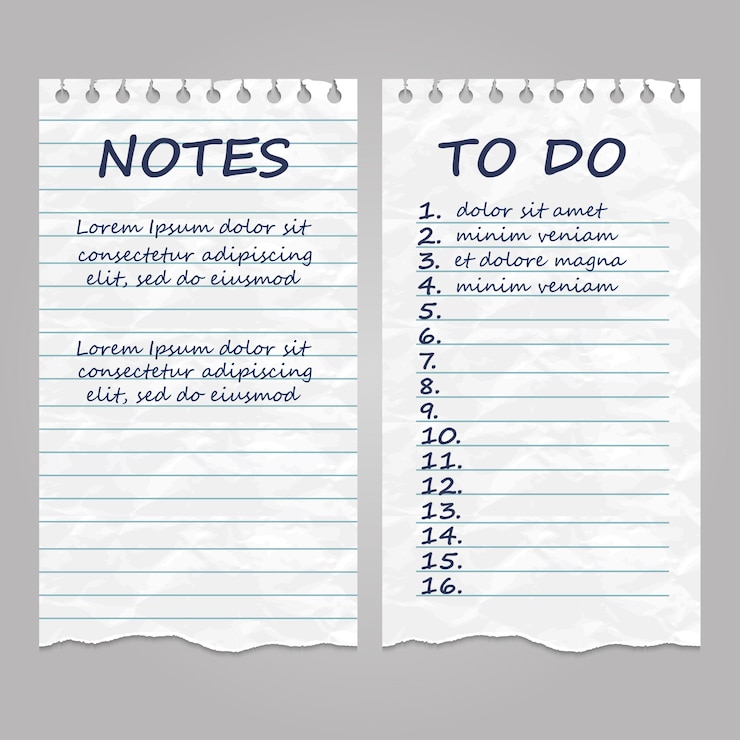 NOTES
Lorem Ipsum dolor sit
consectetur adipiscing
elit, sed do eiusmod
Lorem Ipsum dolor sit
consectetur adipiscing
elit, sed do eiusmod
TO DO
1. dolor sit amet
2. minim veniam
3. et dolore magna
4. minim veniam
5.
6.
7.
8.
9.
10.
11.
12.
13.
14.
15.
16.